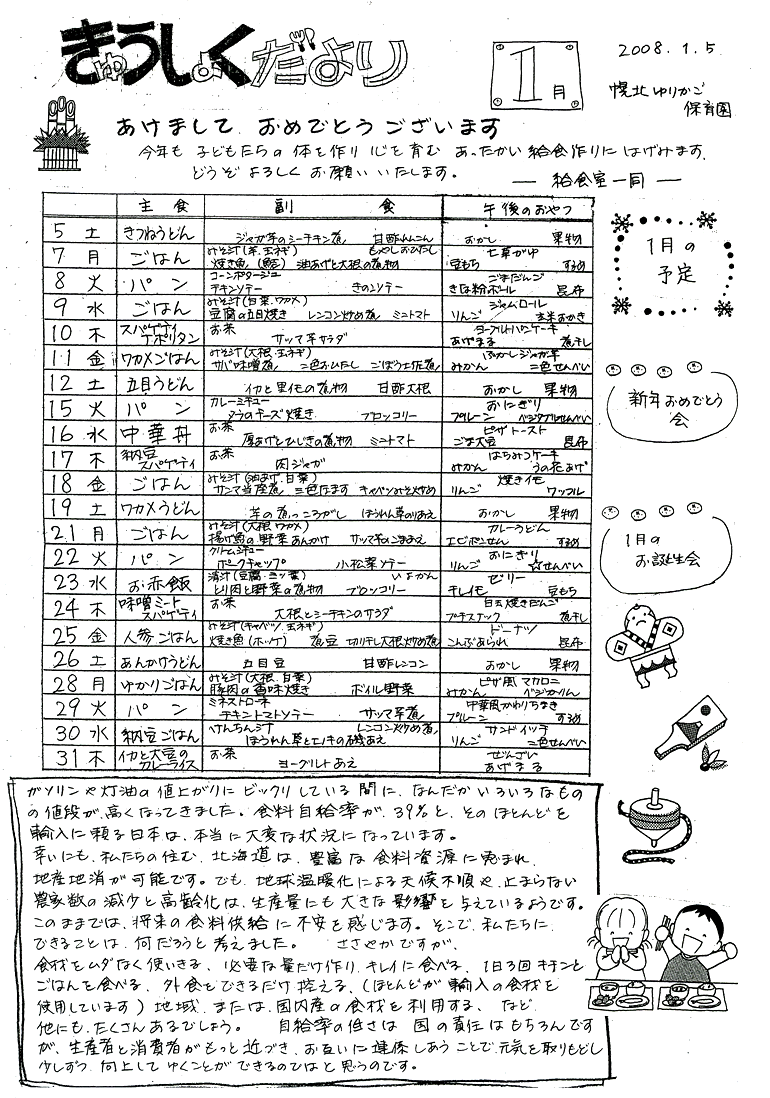 きゅうしょくだより
1月
2008.1.5
幌北ゆりかご
保育園
あけまして おめでとうございます
今年も 子どもたちの 体を作り 心を育む あったかい 給食作りに はげみます.
どうぞ よろしく お願い いたします。
― 給食室一同 ―
主食 副食 午後のおやつ
5 土 きつねうどん ジャガ芋のシーチキン煮 おかし 果物
7 月 ごはん みそ汁(羊.玉ネギ) もやしおひたし 七草がゆ
焼き魚 油あげと大根の煮物 豆もち するめ
8 火 パン コーンポタージュ ごまだんご
チキンソテー きのこソテー きな粉ボール 昆布
9 水 ごはん みそ汁(白菜.ワカメ) ジャムロール
豆腐の五目焼き レンコン炒め煮 ミニトマト りんご 玄米おかき
10 木 スパゲティナポリタン お茶 ヨーグルトパンケーキ
サツマ芋サラダ あげまる 煮干し
11 金 ワカメごはん みそ汁(大根.玉ネギ) ふかしジャガ芋
サバ味噌煮 二色おひたし ごぼう土佐煮 みかん 二色せんべい
12 土 五目うどん イカと里芋の煮物 甘酢大根 おかし 果物
15 火 パン カレーシチュー おにぎり
タラのチーズ焼き ブロッコリー プルーン ベジタブルせんべい
16 水 中華丼 お茶 ピザトースト
厚あげとひじきの煮物 ミニトマト ごま大豆 昆布
17 木 納豆スパゲティ お茶 はちみつケーキ
肉ジャガ みかん うの花あげ
18 金 ごはん みそ汁(油あげ.白菜) 焼きイモ
サンマ当座煮 三色なます キャベツみそ炒め りんご ワッフル
19 土 ワカメうどん 芋の煮っころがし ほうれん草のりあえ おかし 果物
21 月 ごはん みそ汁(大根.ワカメ) カレーうどん
揚げ魚の野菜あんかけ サツマ芋のごまあえ エビポンせん するめ
22 火 パン クリームシチュー おにぎり
ポークチャップ 小松菜ソテー りんご ☆せんべい
23 水 お赤飯 清汁(豆腐.三ツ葉) いよかん ゼリー
とり肉と野菜の煮物 ブロッコリー テレイモ 豆もち
24 木 味噌ミートスパゲティ お茶 白玉焼きだんご
大根とシーチキンのサラダ プチスナック 煮干し
25 金 人参ごはん みそ汁(キャベツ.玉ネギ) ドーナツ
焼き魚(ホッケ) 煮豆 切り干し大根炒め煮 こんぶあられ 昆布
26 土 あんかけうどん 五目豆 甘酢レンコン おかし 果物
28 月 ゆかりごはん みそ汁(大根.白菜) ピザ風マカロニ
豚肉の香味焼き ボイル野菜 みかん ベジかりん
29 火 パン ミネストローネ 中華風かわりちまき
チキントマトソテー サツマ芋煮 プルーン するめ
30 水 納豆ごはん けんちん汁 レンコン炒め煮 サンドイッチ
ほうれん草とエノキの磯あえ りんご 二色せんべい
31 木 イカと大豆のカレーライス お茶 ぜんざい
ヨーグルトあえ あげまる
1月の
予定
新年おめでとう
会
1月の
お誕生会
ガソリンや灯油の値上がりに ビックリしている間に、なんだかいろいろなもの
の値段が、高くなってきました。食料自給率が、39%と、そのほとんどを
輸入に頼る日本は、本当に大変な状況になっています。
幸いにも、私たちの住む、北海道は、豊富な食料資源に恵まれ、
地産地消が可能です。でも、地球温暖化による天候不順や、止まらない
農家数の減少と高齢化は、生産量にも大きな影響を与えているようです。
このままでは、将来の食料供給に不安を感じます。そこで、私たちに
できることは、何だろうと考えました。 ささやかですが、
食材をムダなく使いきる、必要な量だけ作り、キレイに食べる、1日3回キチンと
ごはんを食べる、外食をできるだけ控える、(ほとんどが輸入の食材を
使用しています) 地域、または、国内産の食材を利用する、など、
他にも、たくさんあるでしょう。 自給率の低さは 国の責任はもちろんです
が、生産者と消費者がもっと近づき、お互いに連係しあうことで、元気を取りもどし
少しずつ、向上して ゆくことができるのではと思うのです。